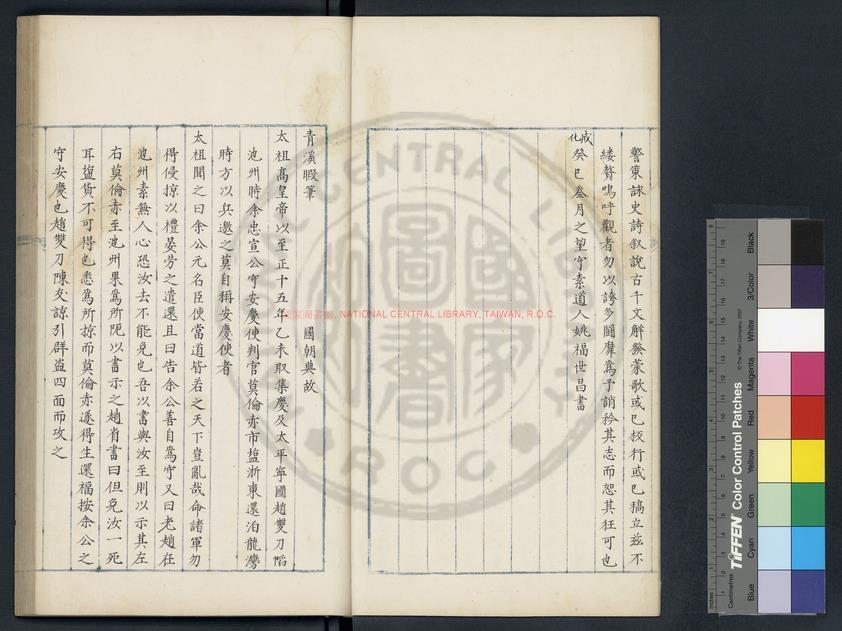 警策詠史詩叙說古千文觧發蒙歌或已板行或已搞立茲不
縷贅嗚呼觀者勿以誇多鬪靡爲予誚矜其志而恕其狂可也
成化癸巳叁月之望守素道人姚福世昌書
青溪暇筆　國朝典故
太祖高皇帝以至正十五年乙未取集慶及太平寧國趙雙刀陷
池州時余忠宣公守安慶使判官莫倫赤市塩浙東還泊龍灣
時方以兵邀之莫自稱安慶使者
太祖聞之曰余公元名臣使當道皆若之天下豈亂哉命諸軍勿
得侵掠以禮晏勞之遣還且曰告余公善自爲守又曰老趙在
池州素無人心恐汝去不能免也吾以書與汝至則以示其左
右莫倫赤至池州果爲所阨以書示之趙肯書曰但免汝一死
耳塩貨不可得也悉爲所掠而莫倫赤遂得生還福按余公之
守安慶也趙雙刀陳友諒引群盗四面而攻之
NATIONAL CENTRAL LIBRARY, TAIWAN, R.O.C.
TIFFEN Color Control Patches
© The Tiffen Company, 2007
Centimetres
Inches
Blue
Cyan
Green
Yellow
Red
Magenta
White
3/Color
Black